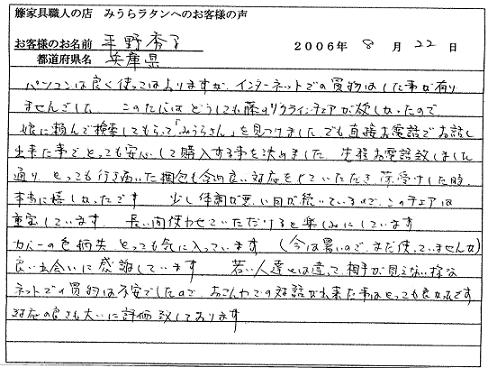 籐家具職人の店 みうらラタンへのお客様の声
お客様のお名前 平野秀子 2006年 8月 22日
都道府県名 兵庫県
パソコンは良く使ってはおりますが、インターネットでの買物はした事が有り
ませんでした このたびはどうしても籐のリクライニングチェアが欲しかったので
娘に頼んで検索してもらって「みうらさん」を見つけました でも直接お電話でお話し
出来た事でとっても安心して購入する事を決めました 先程お電話致しました
通り とっても行き届いた梱包も含め良い対応をしていただき 荷受けした時、
本当に嬉しかったです 少し体調が悪い日が続いているので、このチェアは
重宝しています 長い間使わせていただけると楽しみにしています
カバーの色柄共 とっても気に入っています (今は暑いので、まだ使っていませんが)
良い出会いに感謝しています 若い人達とは違って相手が見えない様な
ネットでの買物は不安でしたので おこんやでの対話が出来た事はとっても良かったです
対応の良さも大いに評価致しております